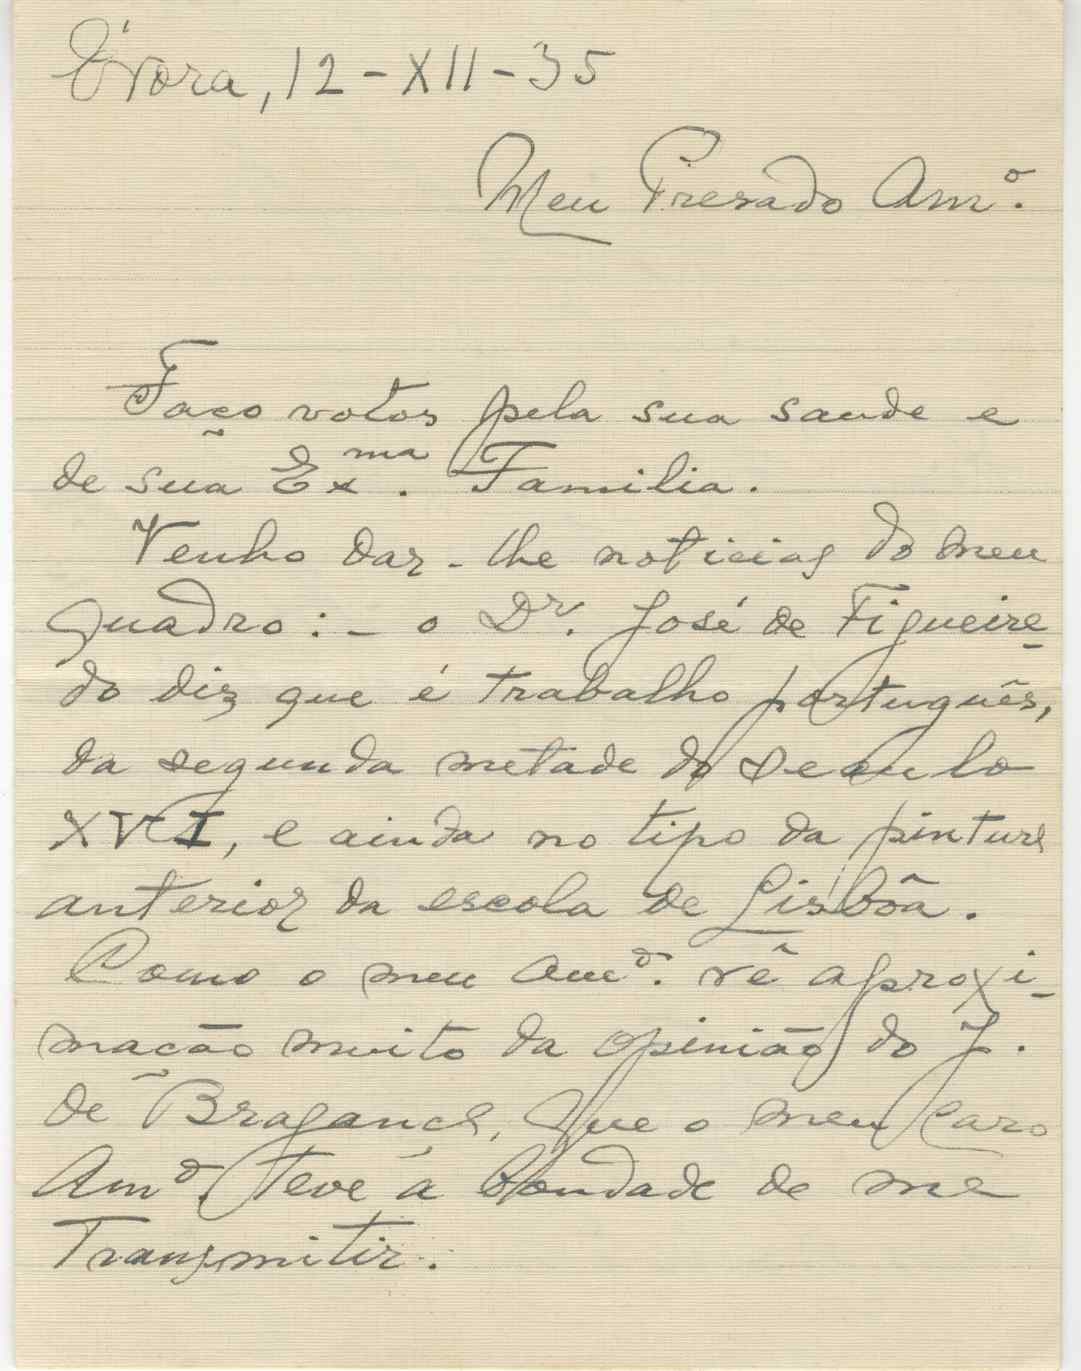 Évora, 12-XII-35
Meu Presado Amº.
Faço votos pela sua saude e
de sua Exma. Familia.
Venho dar-lhe noticias do meu
quadro:- o Dr. José de Figueire-
do diz que é trabalho português,
da segunda metade do seculo
XVI, e ainda no tipo da pintura
anterior da escola de Lisbôa.
Como o meu Amº. vê aproxi-
mação muito da opinião do J.
de Bragança, que o meu caro
Amº. teve a bondade de me
transmitir.